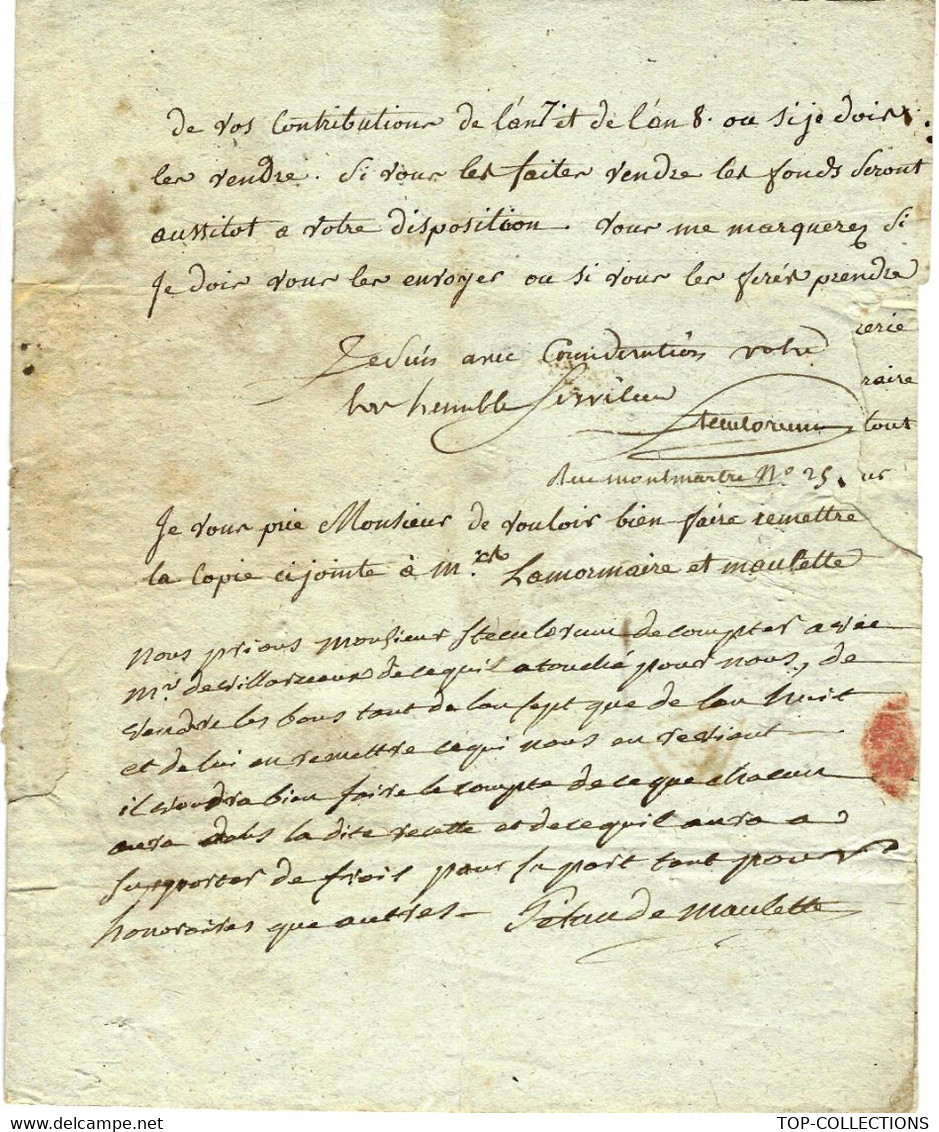 de vos Contributions de l'an 7 et de l'an 8. ou si je dois
les vendre. Si vous les faites vendre les fonds seront
aussitot a votre disposition. vous me marquerez si
Je dois vous les envoyer ou si vous les ferés prendre
Je suis avec Consideration votre
tres humble serviteur
Steculorum
Rue montmartre N° 25.
cerie
raire
tout
us
Je vous prie Monsieur de vouloir bien faire remettre
la Copie ci jointe à M.rs Lamormaire et maulette
nous prions monsieur Steculorum de compter avec
mr de villarceaux de ce quil a touché pour nous, de
vendre les bons tant de lan sept que de lan huit
et de lui en remettre ce qui nous en revient
il voudra bien faire le compte de ce que chacun
aura dans la dite recette et de ce quil aura a
supporter de frais pour sa part tant pour
honoraires que autres - Petau de maulette
TOP-COLLECTIONS